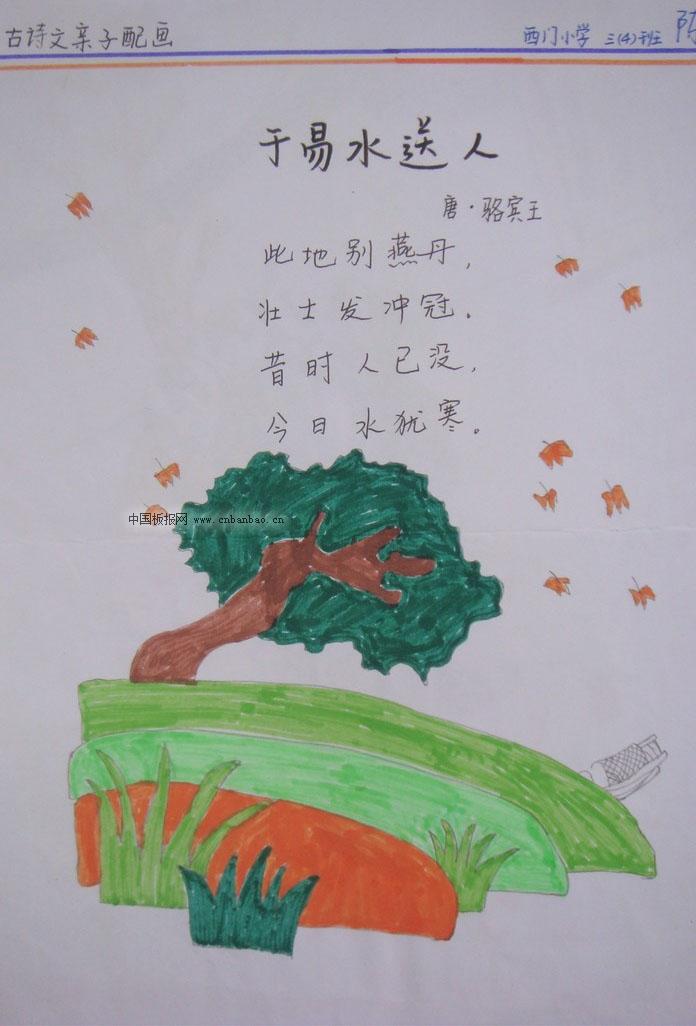 古诗文亲子配画 西门小学 三(4)班 陈
于易水送人
唐·骆宾王
此地别燕丹，
壮士发冲冠。
昔时人已没，
今日水犹寒。
中国板报网 www.cnbanbao.cn